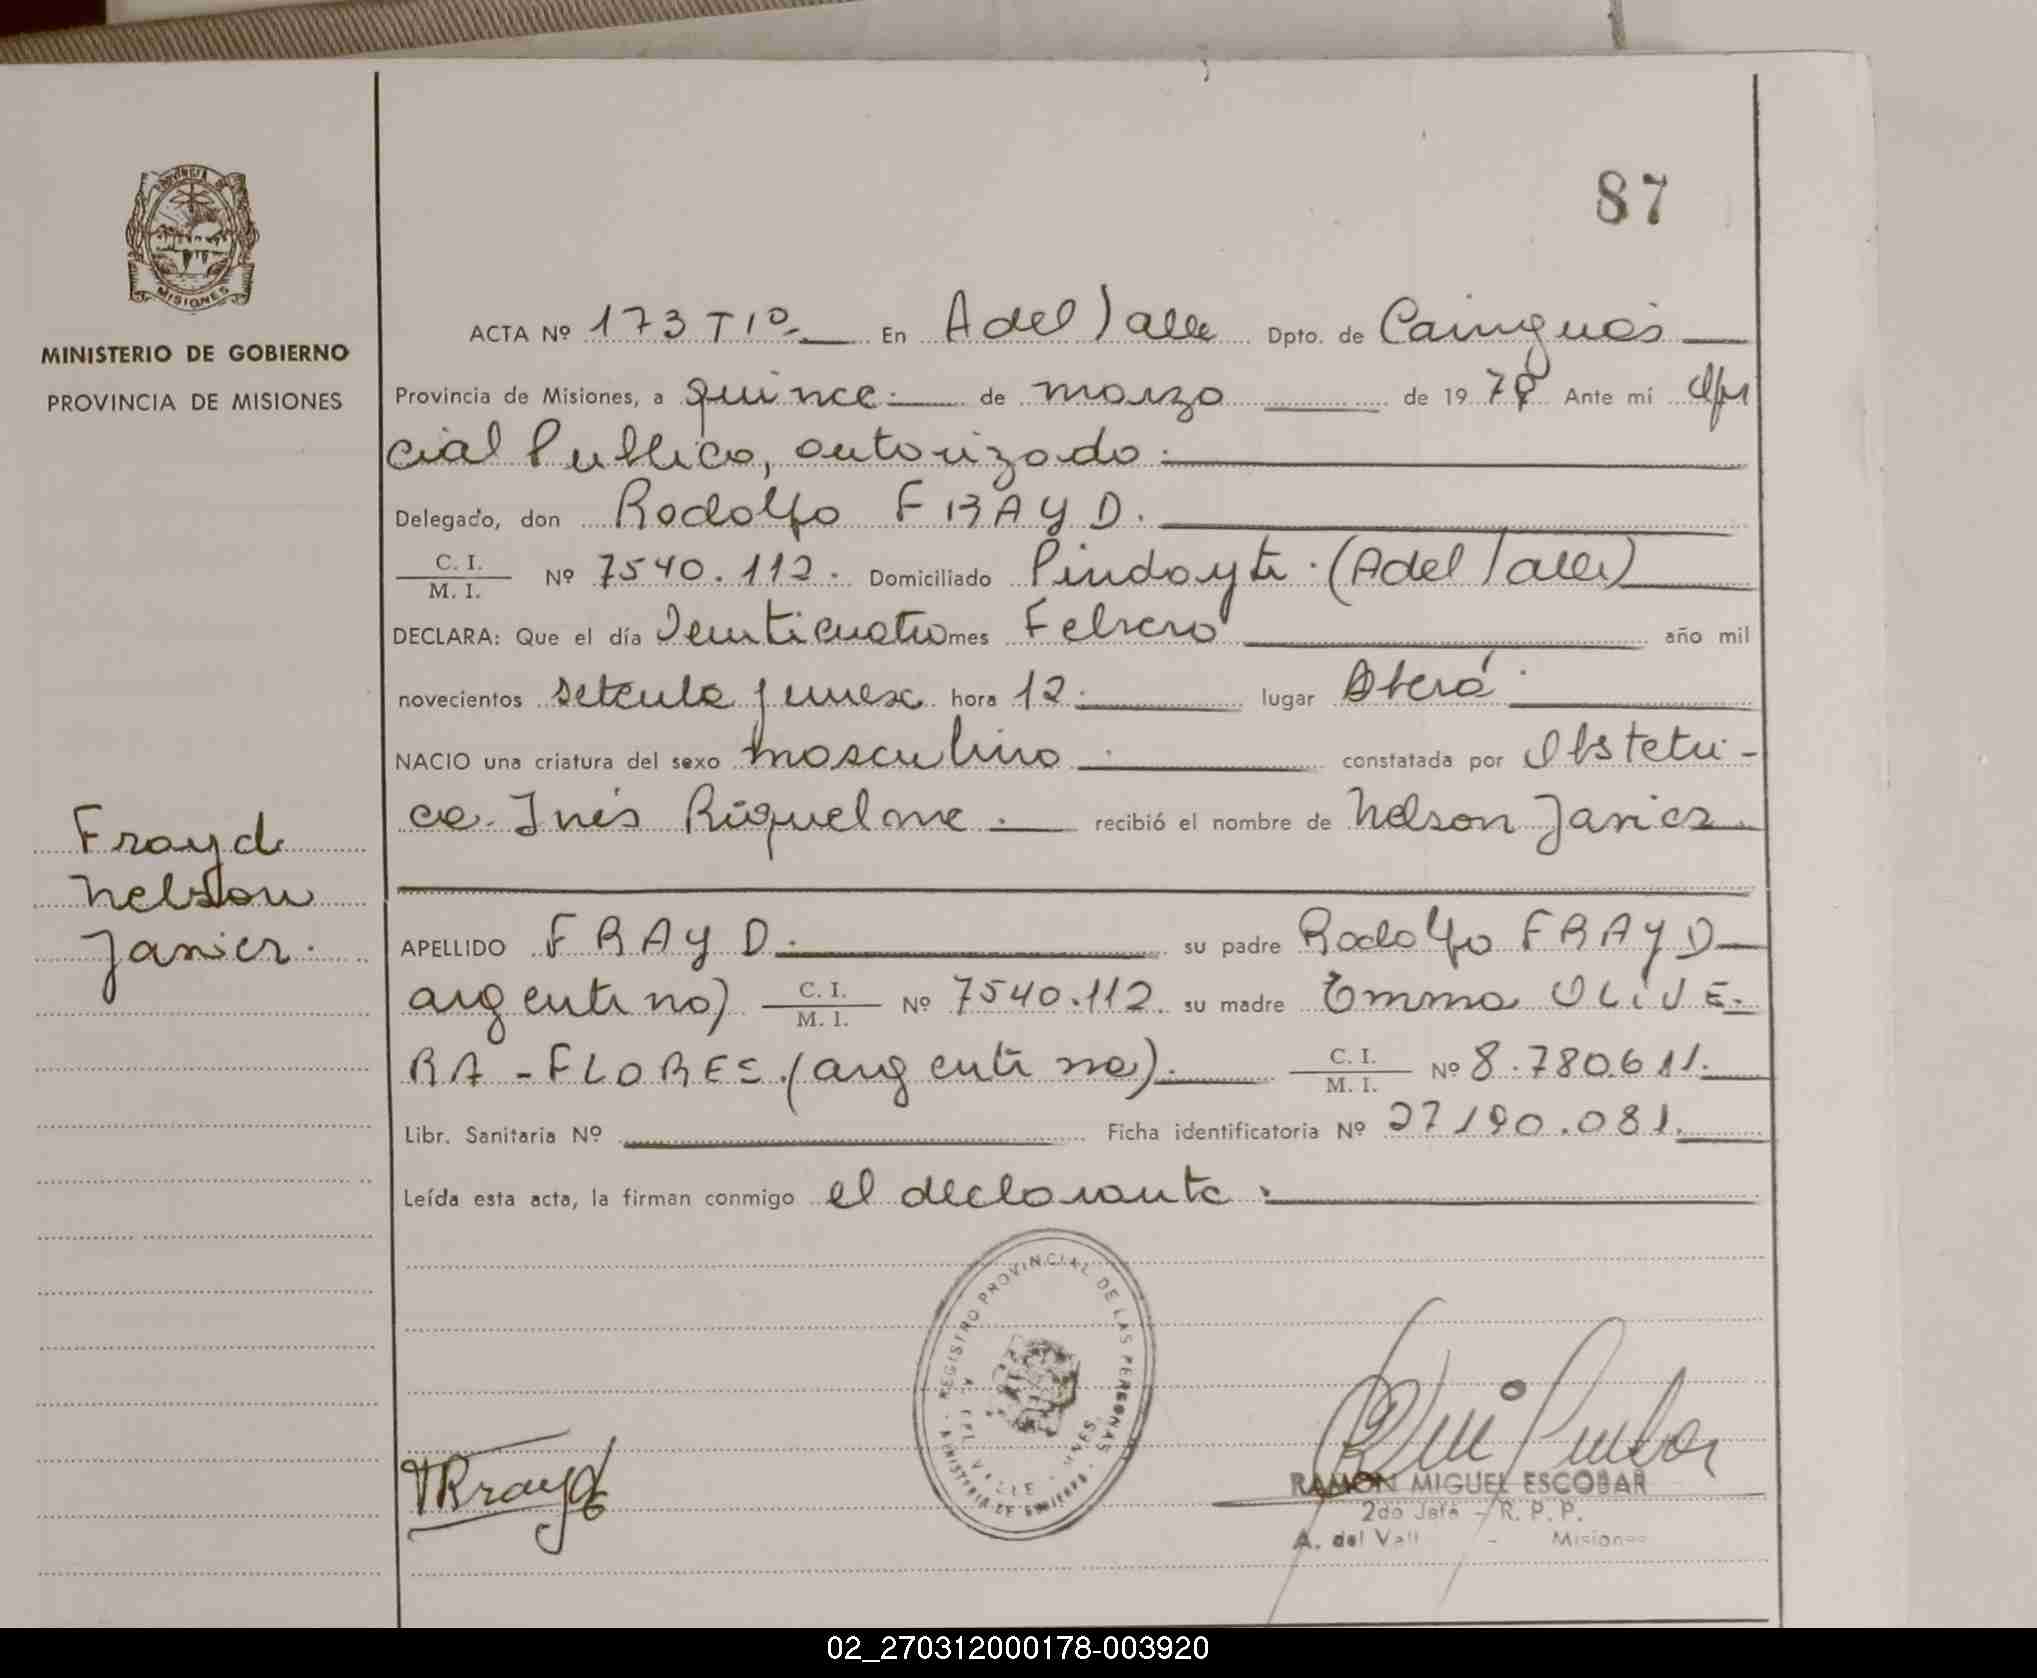 87
MINISTERIO DE GOBIERNO
PROVINCIA DE MISIONES
ACTA Nº 173 T 1º En A del Valle Dpto. de Cainguás
Provincia de Misiones, a quince de marzo de 1979 Ante mí Ofi
cial Publico, autorizado.
Delegado, don Rodolfo FRAYD.
C. I. / M. I. Nº 7540.112. Domiciliado Pindayti. (A del Valle)
DECLARA: Que el día Veinticuatro mes Febrero año mil
novecientos setenta y nueve hora 12. lugar Oberá
NACIO una criatura del sexo masculino constatada por Obstetri-
ca. Inés Riquelme. recibió el nombre de Nelson Javier.
Frayd
Nelson
Javier.
APELLIDO FRAYD. su padre Rodolfo FRAYD
argentino) C. I. / M. I. Nº 7540.112. su madre Emma OLIVE-
RA - FLORES. (argentina). C. I. / M. I. Nº 8.780.611.
Libr. Sanitaria Nº Ficha identificatoria Nº 27190.081.
Leída esta acta, la firman conmigo el declarante.
REGISTRO PROVINCIAL DE LAS PERSONAS
RAMON MIGUEL ESCOBAR
2do Jefe - R. P. P.
A. del Valle - Misiones
02_270312000178-003920